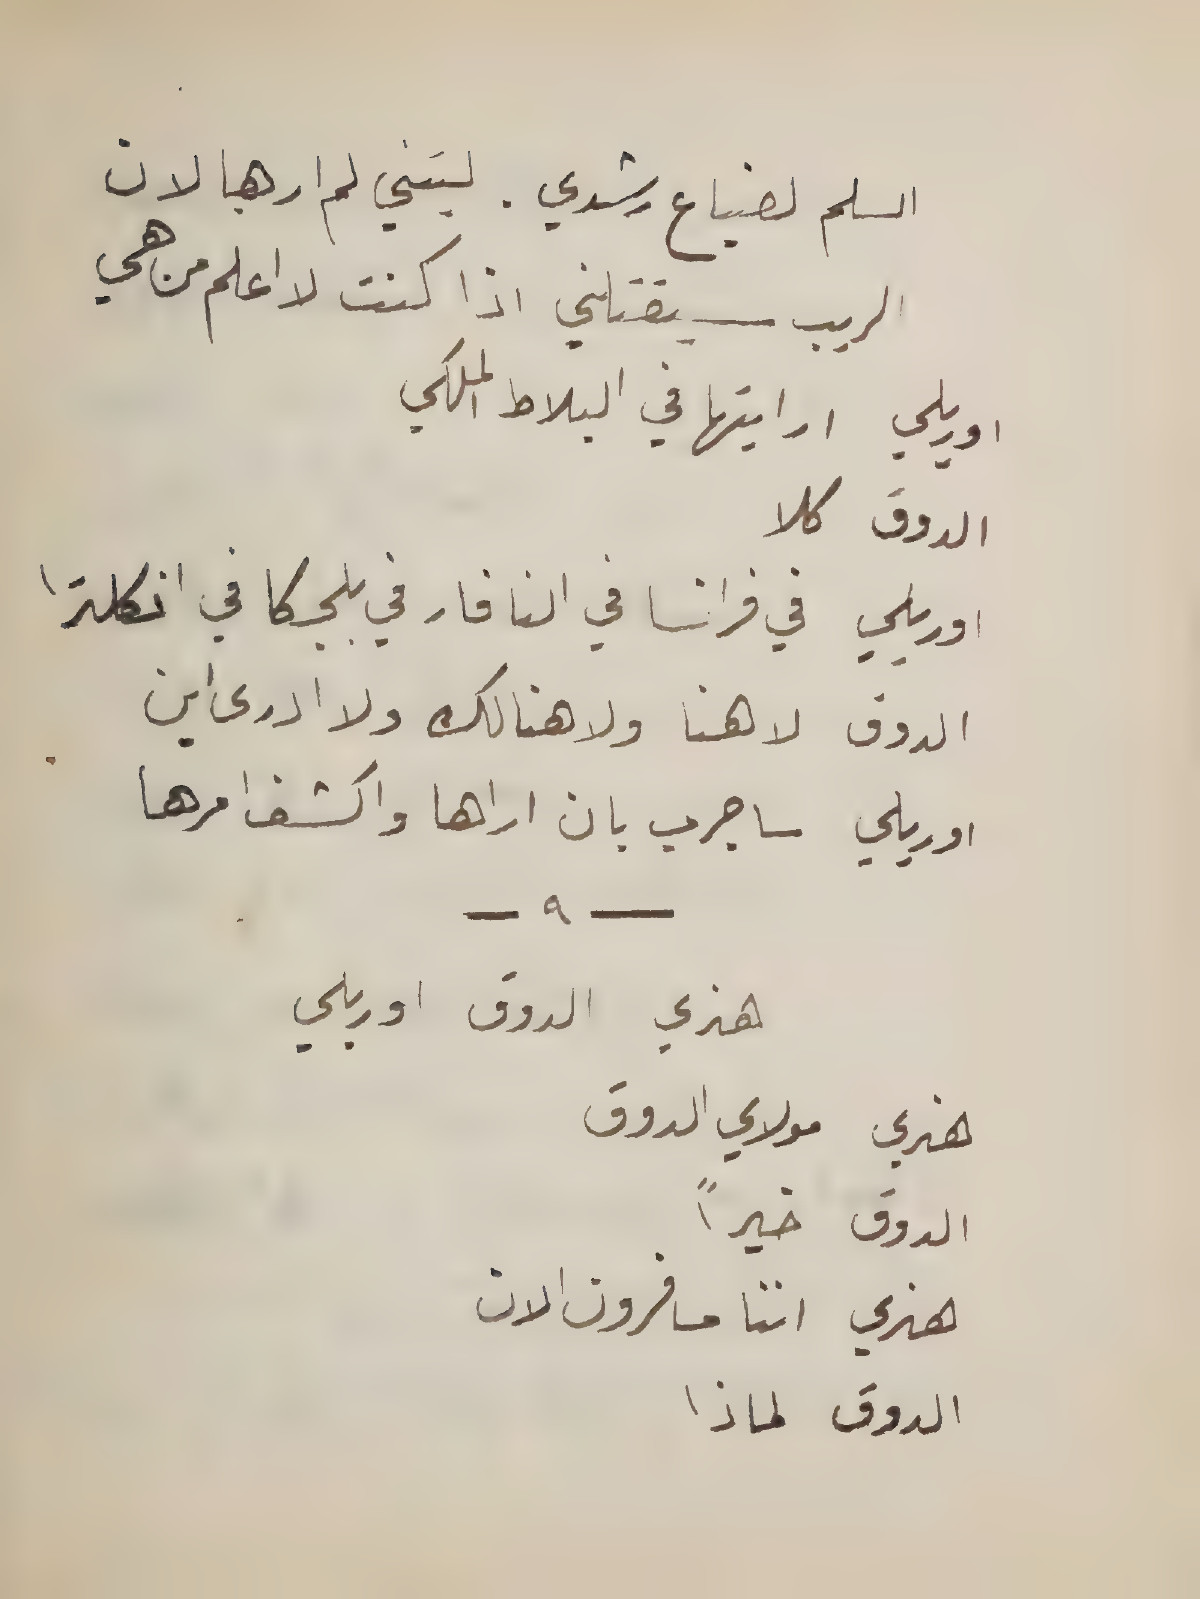 السلم لضياع رشدي . ليتني لم ارها لان
الريب سيقتلني اذا كنت لا اعلم من هي
اوريلي ارايتها في البلاط الملكي
الدوق كلا
اوريلي في فرانسا في النافار في بلجكا في انكلترا
الدوق لا هنا ولا هنالك ولا ادرى اين
اوريلي ساجرب بان اراها واكشف امرها
— ٩ —
هنري الدوق اوريلي
هنري مولاي الدوق
الدوق خيراً
هنري اننا مسافرون الان
الدوق لماذا